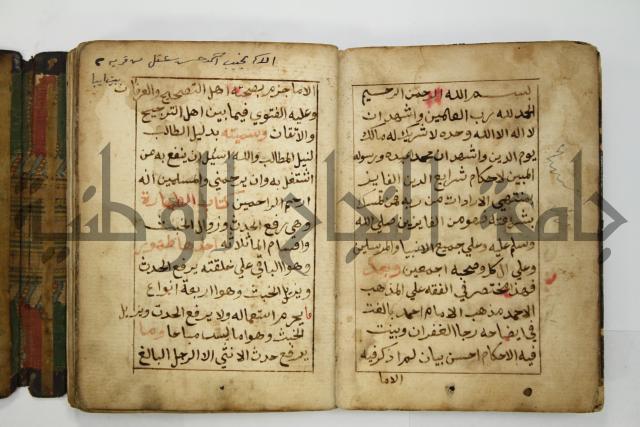 بسم الله الرحمن الرحيم
الحمد لله رب العالمين واشهد ان
لا اله الا الله وحده لا شريك له مالك
يوم الدين واشهد ان محمد عبده ورسوله
المبين لاحكام شرايع الدين الفايز
بمنتهى الارادات من ربه فمن تمسك
بشريعته فهو من الفايزين صلى الله
وسلم عليه وعلى جميع الانبيا والمرسلين
وعلى آل كل وصحبه اجمعين وبعد
فهذا مختصر في الفقه على المذهب
الاحمد مذهب الامام احمد بالغت
في ايضاحه رجا الغفران وبينت
فيه الاحكام احسن بيان لم اذكر فيه
الاما
الاما جزم بصحته اهل التصحيح والعرفان
وعليه الفتوى فيما بين اهل الترجيح
والاتقان وسميته بدليل الطالب
لنيل المطالب والله اسئل ان ينفع به من
اشتغل به وان يرحمني والمسلمين انه
ارحم الراحمين كتاب الطهارة
وهي رفع الحدث وزوال الخبث
واقسام الماء ثلاثة احدها طهور
وهو الباقي على خلقته يرفع الحدث
ويزيل الخبث وهو اربعة انواع
ما يحرم استعماله ولا يرفع الحدث ويزيل
الخبث وهو ما ليس مباحا وما
يرفع حدث الانثى لا الرجل البالغ
جامعة النجاح الوطنية